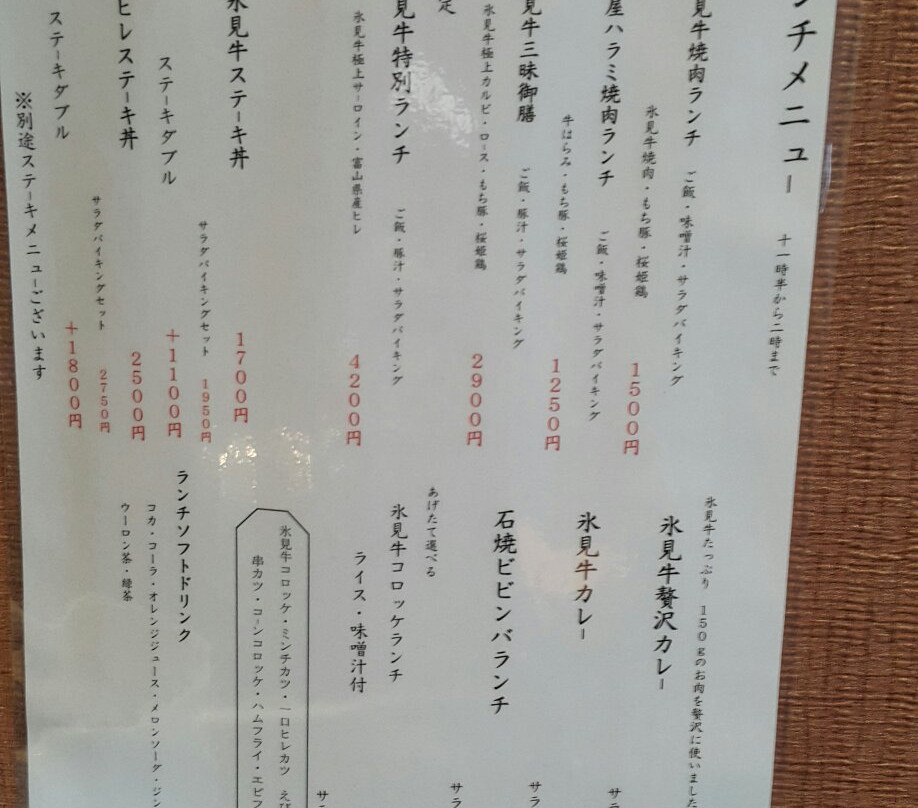 ンチメニュー 十一時半から二時まで
見牛焼肉ランチ ご飯・味噌汁・サラダバイキング
氷見牛焼肉・もち豚・桜姫鶏 1500円
屋ハラミ焼肉ランチ ご飯・味噌汁・サラダバイキング
牛はらみ・もち豚・桜姫鶏 1250円
見牛三昧御膳 ご飯・豚汁・サラダバイキング
氷見牛極上カルビ・ロース・もち豚・桜姫鶏 2900円
定
見牛特別ランチ ご飯・豚汁・サラダバイキング
氷見牛極上サーロイン・富山県産ヒレ 4200円
氷見牛ステーキ丼 1700円
サラダバイキングセット 1950円
ステーキダブル +1100円
ヒレステーキ丼 2500円
サラダバイキングセット 2750円
ステーキダブル +1800円
※別途ステーキメニューございます
氷見牛たっぷり 150名のお肉を贅沢に使いました
氷見牛贅沢カレー
サラ
氷見牛カレー
サラ
石焼ビビンバランチ
サラ
あげたて選べる
氷見牛コロッケランチ
ライス・味噌汁付
サ
氷見牛コロッケ・ミンチカツ・一口ヒレカツ えび
串カツ・コーンコロッケ・ハムフライ・エビフ
ランチソフトドリンク
コカ・コーラ・オレンジジュース・メロンソーダ・ジン
ウーロン茶・緑茶